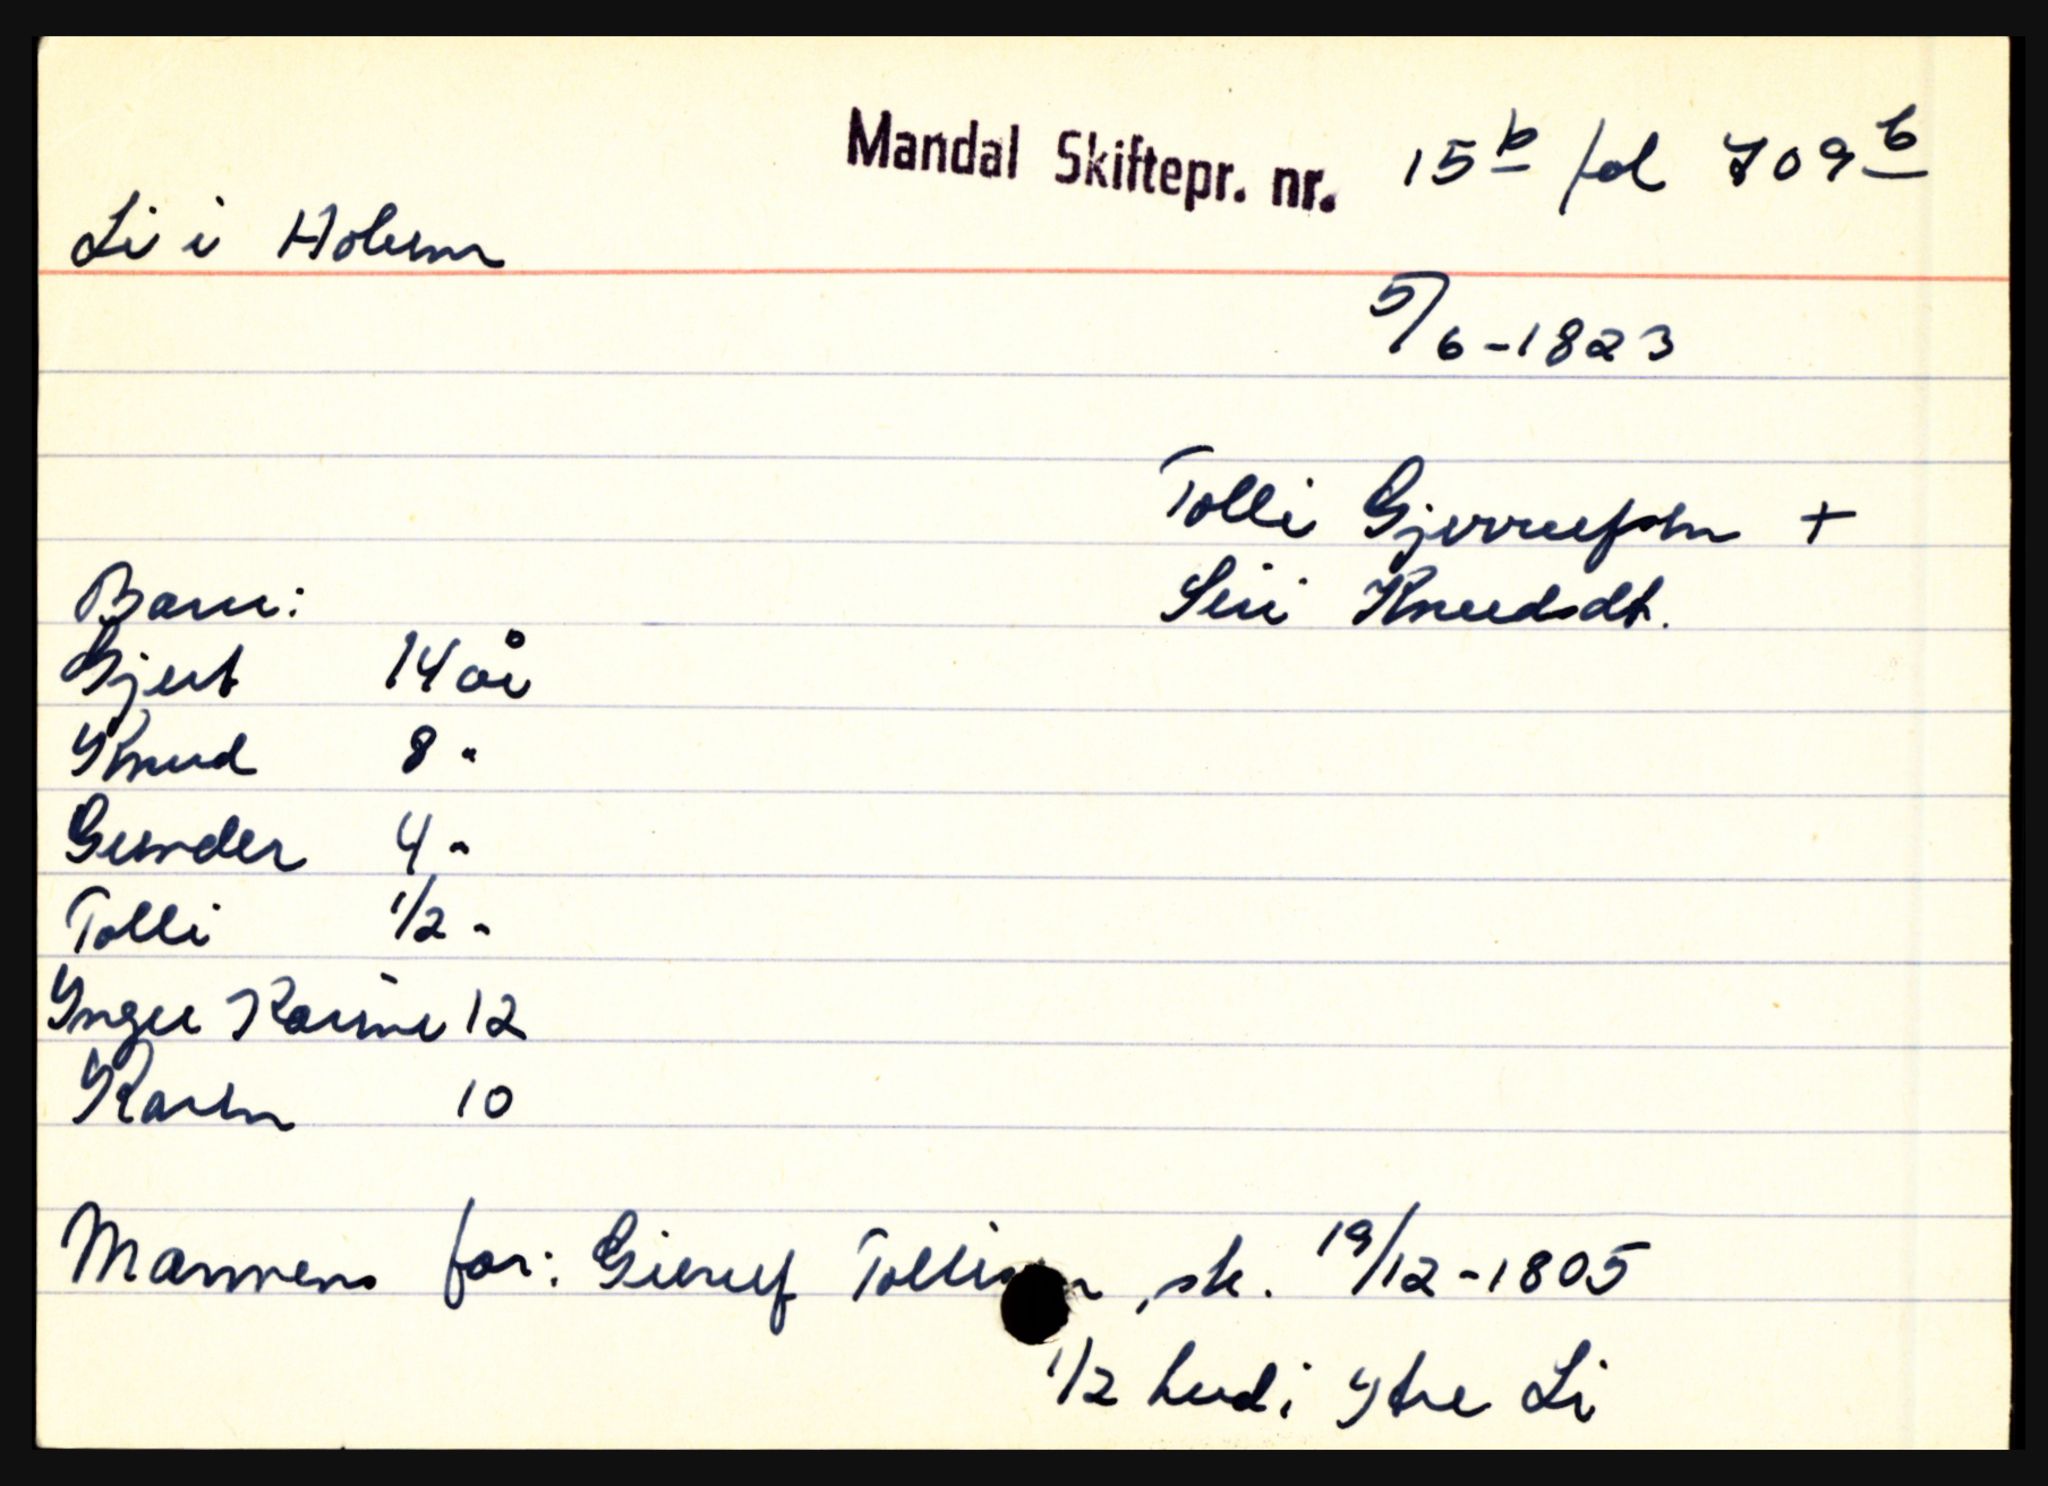 Mandal Skiftepr. nr. 15b fol 709b
Li i Holum
5/6-1823
Tolli Gjerrufsen +
Siri Knudsdt.
Barn:
Gjert 14 år
Knud 8 "
Gunder 4 "
Tolli 1/2 "
Inger Karine 12
Karen 10
Mannens far: Gieruf Tollisen, sk. 19/12-1805
1/2 hud i Ytre Li